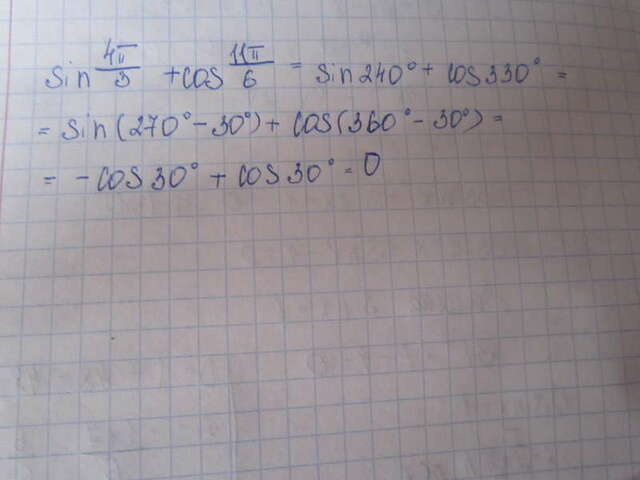 sin 4π/3 + cos 11π/6 = sin 240° + cos 330° =
= sin (270° - 30°) + cos (360° - 30°) =
= - cos 30° + cos 30° = 0